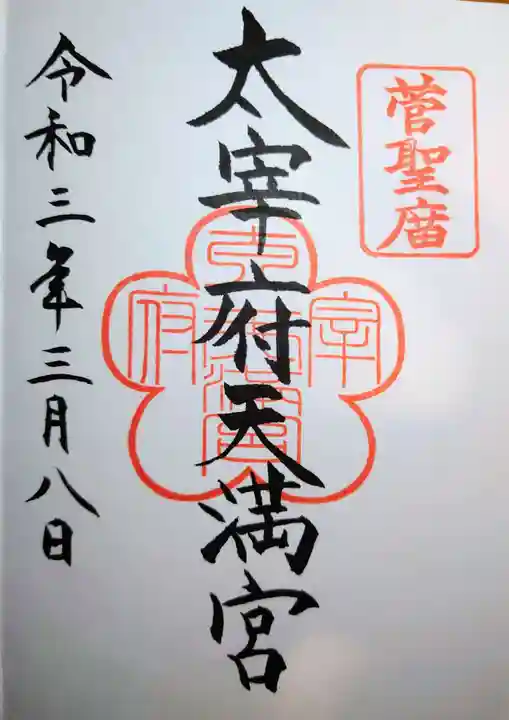 菅聖庿
太宰府天満宮
令和三年三月八日